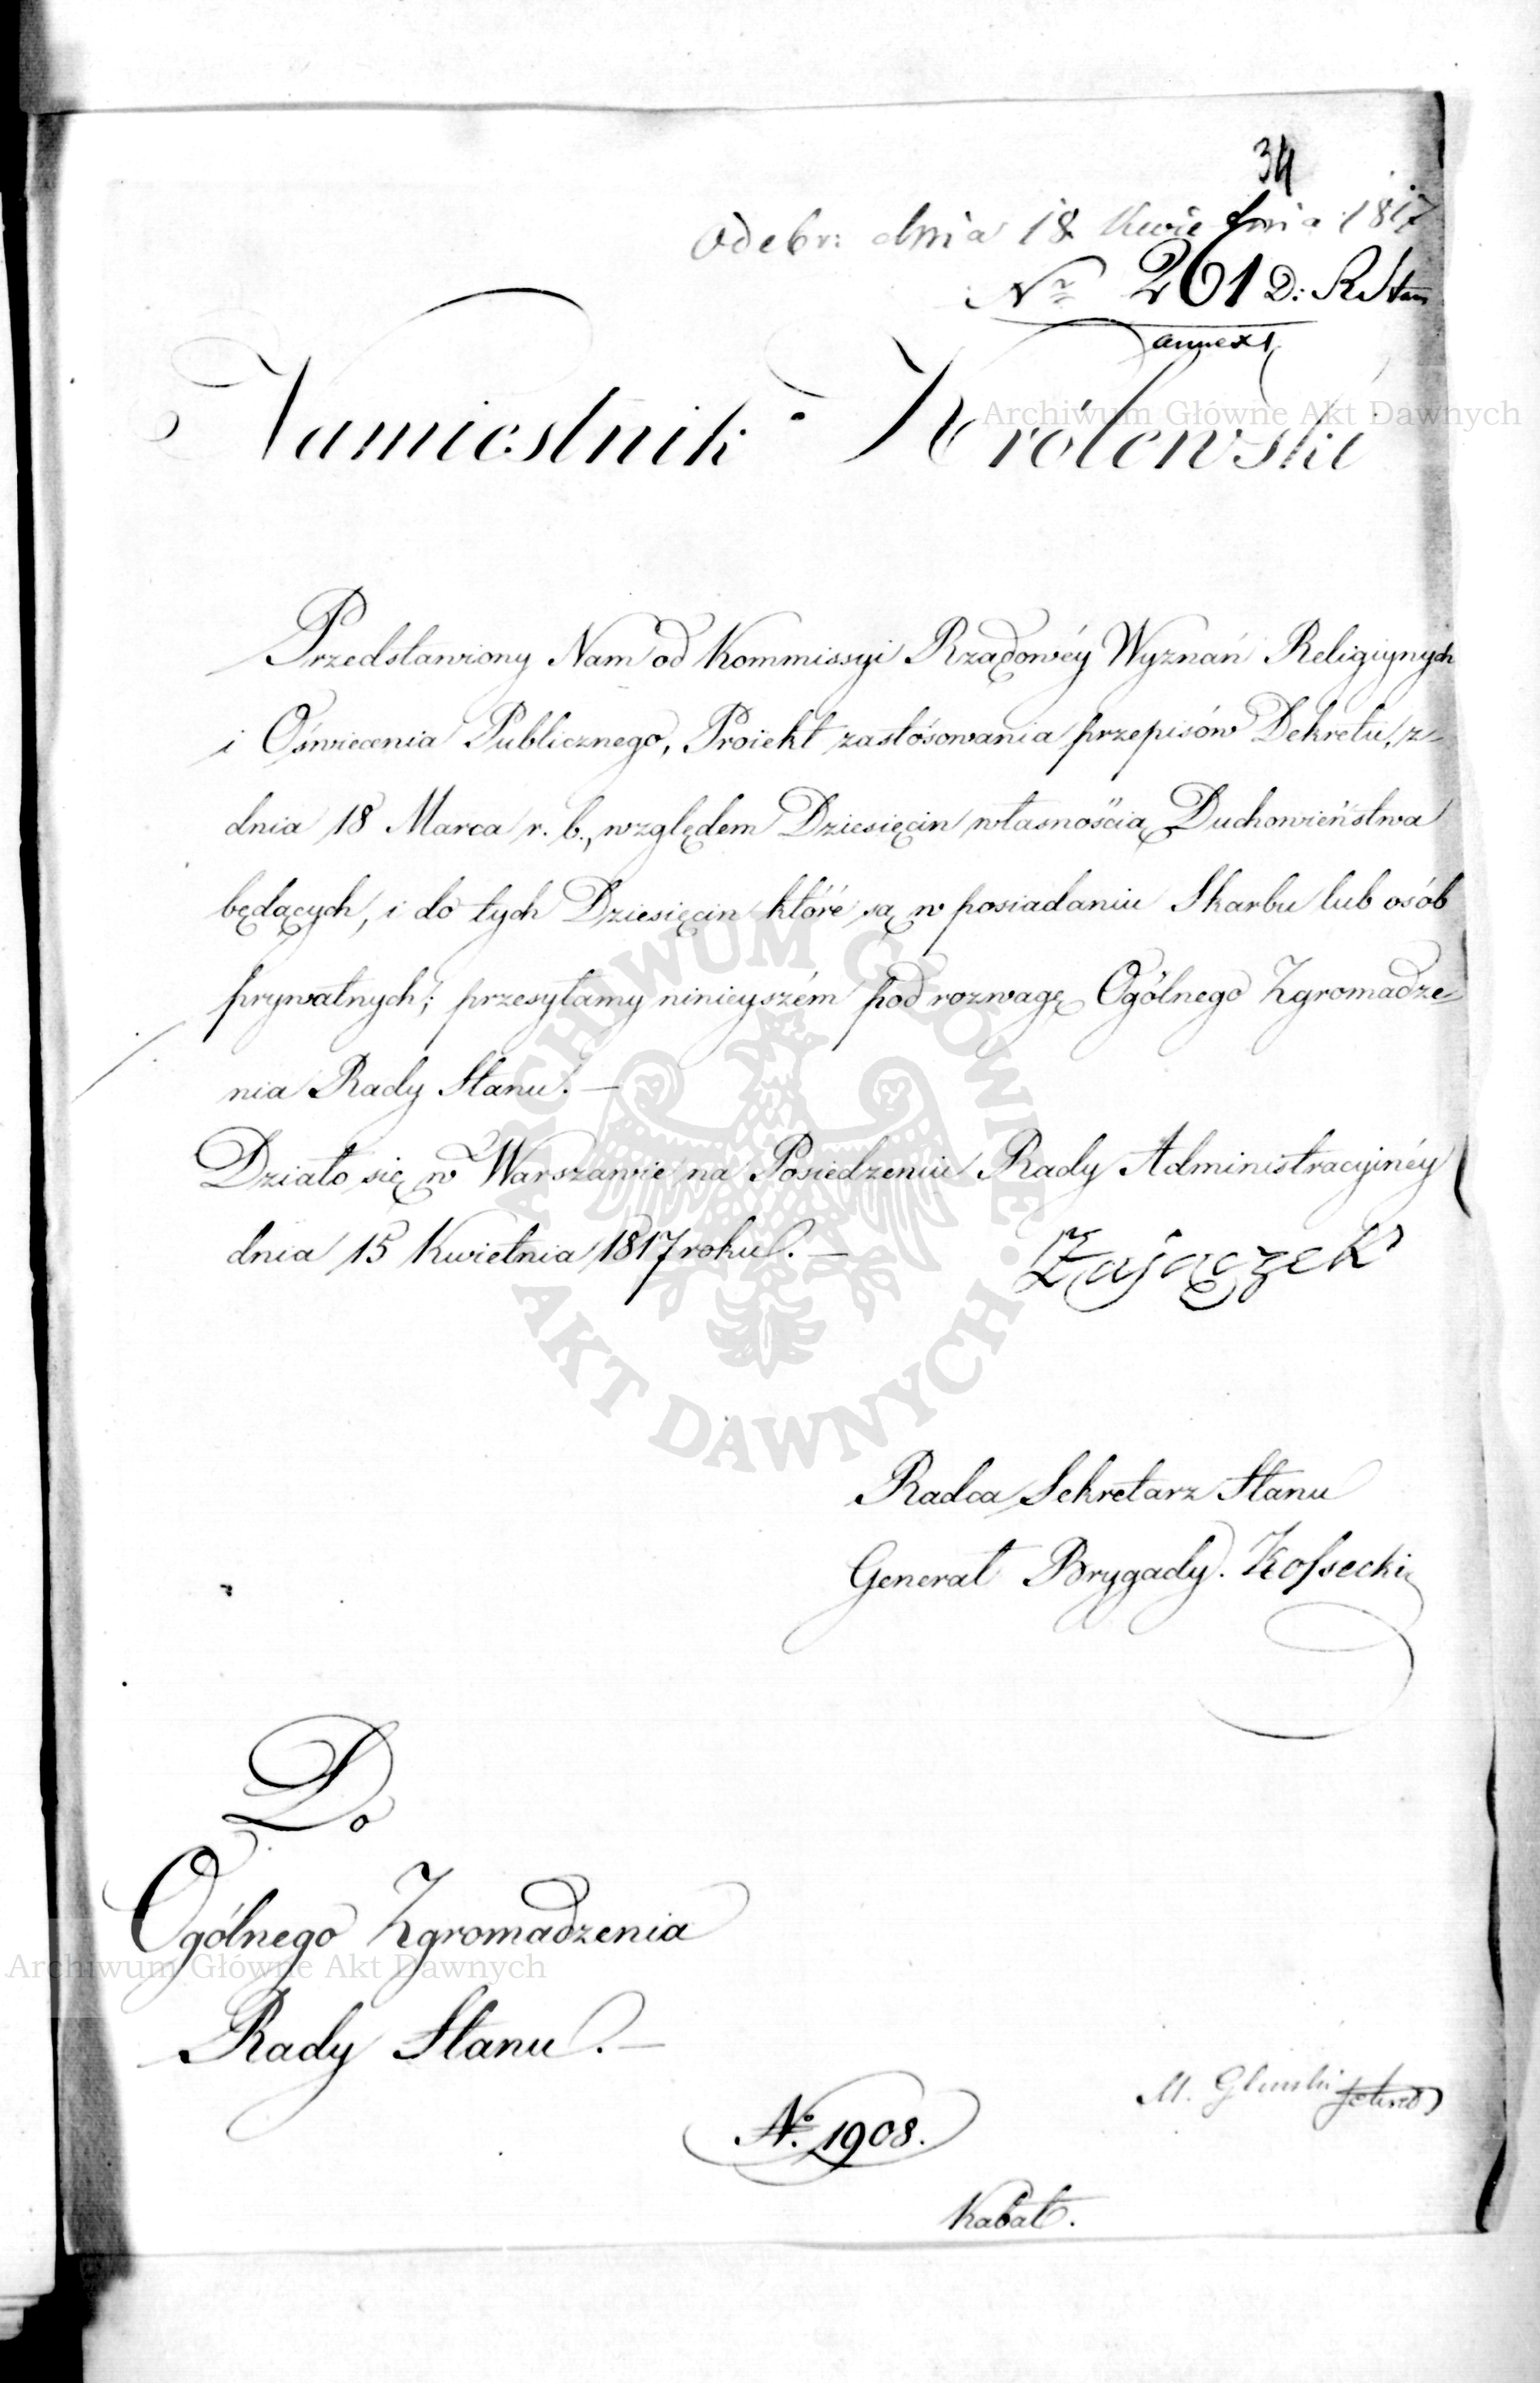 34
Odebr: dnia 18 Kwietnia 1817
Nr 261 D: R Stan
annex 1
Namiestnik Królewski
Archiwum Główne Akt Dawnych
Przedstawiony Nam od Kommissyi Rządowéy Wyznań Religiynych
i Oświecenia Publicznego, Proiekt zastósowania przepisów Dekretu, z
dnia 18 Marca r. b., względem Dziesięcin własnością Duchowieństwa
będących, i do tych Dziesięcin któré są w posiadaniu Skarbu lub osób
prywatnych; przesyłamy ninieyszém pod rozwagę Ogólnego Zgromadze-
nia Rady Stanu. —
Działo się w Warszawie na Posiedzeniu Rady Administracyinéy
dnia 15 Kwietnia 1817 roku. —
Zajączek
ARCHIWUM GŁÓWNE AKT DAWNYCH
Radca Sekretarz Stanu
Generał Brygady. Kossecki
Do
Ogólnego Zgromadzenia
Archiwum Główne Akt Dawnych
Rady Stanu. —
M. Glinski
No. 1908.
Kabat.